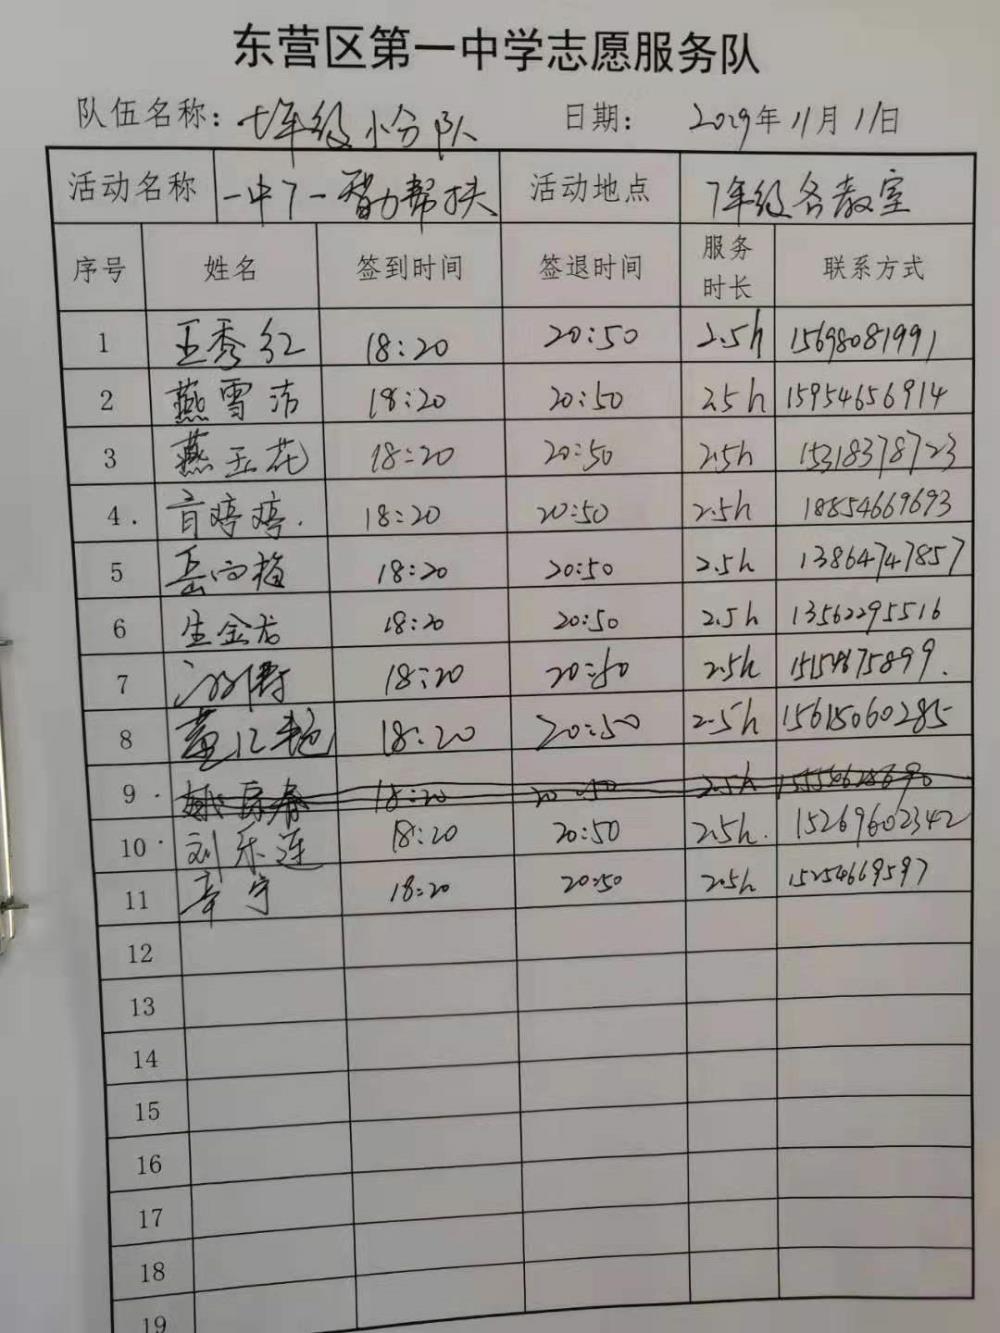 东营区第一中学志愿服务队
队伍名称: 七年级小分队 日期: 2019年11月11日
活动名称 一中7一智力帮扶 活动地点 7年级各教室
序号 姓名 签到时间 签退时间 服务时长 联系方式
1 王秀红 18:20 20:50 2.5h 15698081991
2 燕雪 18:20 20:50 2.5h 15954656914
3 燕玉花 18:20 20:50 2.5h 15318378723
4. 婷婷. 18:20 20:50 2.5h 18854669693
5 岳向梅 18:20 20:50 2.5h 13864747857
6 生金 18:20 20:50 2.5h 13562295516
7 18:20 20:50 2.5h
8 18:20 20:50 2.5h 15615060285
9. 18:20 20:50 2.5h
10. 刘乐莲 18:20 20:50 2.5h. 15269602342
11 18:20 20:50 2.5h 15254669597
12
13
14
15
16
17
18
19